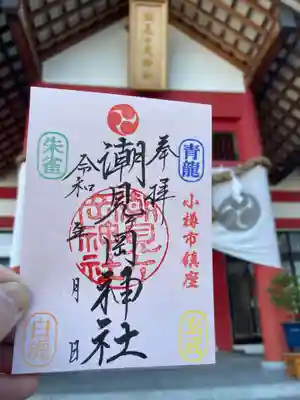 奉拝
青龍
小樽市鎮座
潮見ヶ岡神社
令和 年 月 日
朱雀
白虎
玄武